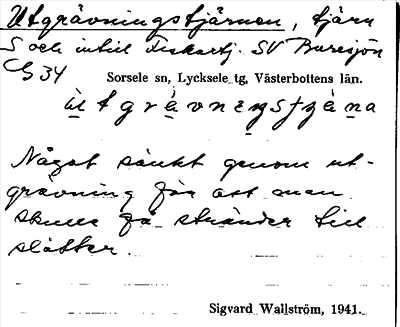 Utgrävningstjärnen, tjärn
S och intill Fiskartj. SV Buresjön
34
Sorsele sn, Lycksele tg, Västerbottens län.
Något sänkt genom ut-
grävning för att man
skulle få stränder till
slåtter.
Sigvard Wallström, 1941.